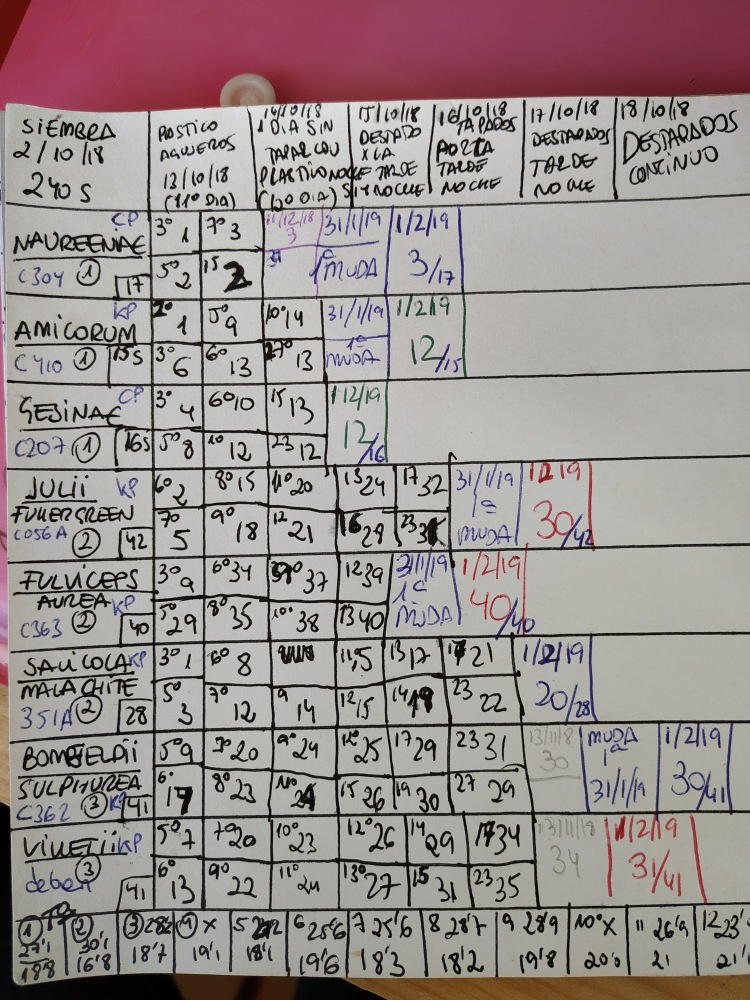 SIEMBRA
2/10/18
240 S
PLASTICO
AGUJEROS
13/10/18
(11º DIA)
14/10/18
1 DIA SIN
TAPAR CON
PLASTICO NOCHE
15/10/18
DESTAPADO
X LA
TARDE
SI NOCHE
16/10/18
TAPADOS
TARDE
NOCHE
17/10/18
DESTAPADOS
TARDE
NOCHE
18/10/18
DESTAPADOS
CONTINUO
NAUREENIAE CP
C304 ① 17
3º 1 7º 3 11/12/18 3 31/1/19 1/2/19
5º 2 15 2 1ª MUDA 3/17
AMICORUM KP
C410 ① 15s
2º 1 5º 9 10º 14 31/1/19 1/2/19
3º 6 6º 13 27º 13 1ª MUDA 12/15
GESINAE CP
C207 ① 16s
3º 4 6º 10 15 13 1/2/19
5º 8 10 12 23 12 12/16
JULII KP
FULLERGREEN
C056A ② 42
6º 2 8º 15 11º 20 13 24 17 32 31/1/19 1/2/19
7º 5 9º 18 12 21 16 29 23 1ª MUDA 30/42
FULVICEPS
AUREA KP
C363 ② 40
3º 9 6º 34 37 12 39 31/1/19 1/2/19
5º 29 8º 35 10º 38 13 40 1ª MUDA 40/40
SALICOLA KP
MALACHITE
351A ② 28
3º 1 6º 8 13 17 21 1/2/19
5º 3 7º 12 9 14 12 15 14 19 23 22 20/28
SULPHUREA
C362 ③ KP 41
5º 9 7º 20 9º 24 12º 25 17 29 23 31 13/11/18 30 MUDA 1ª 1/2/19
6º 17 8º 23 15 26 19 30 27 29 31/1/19 30/41
VILLETII KP
③ 41
5º 7 7º 20 10º 23 12º 26 14 29 17 34 13/11/18 34 1/2/19
6º 13 9º 22 11º 24 13º 27 15 31 23 35 31/41
① 27'1 ② 30'1 ③ ④ X 5 6 25'6 7 25'6 8 28'7 9 28'9 10º X 11 26'9 12 23'
18'8 16'8 18'7 19'1 18'1 19'6 18'3 18'2 19'8 21